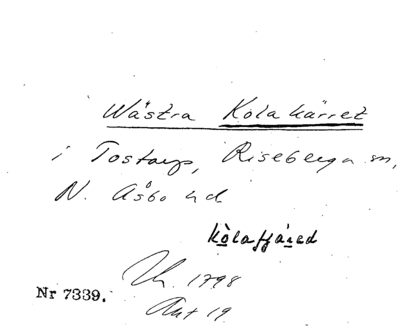 Wästra Kolakärret
i Tostarp, Riseberga sn,
N. Åsbo hd
kòlafjáred
1798
Nr 7339.
Akt 19